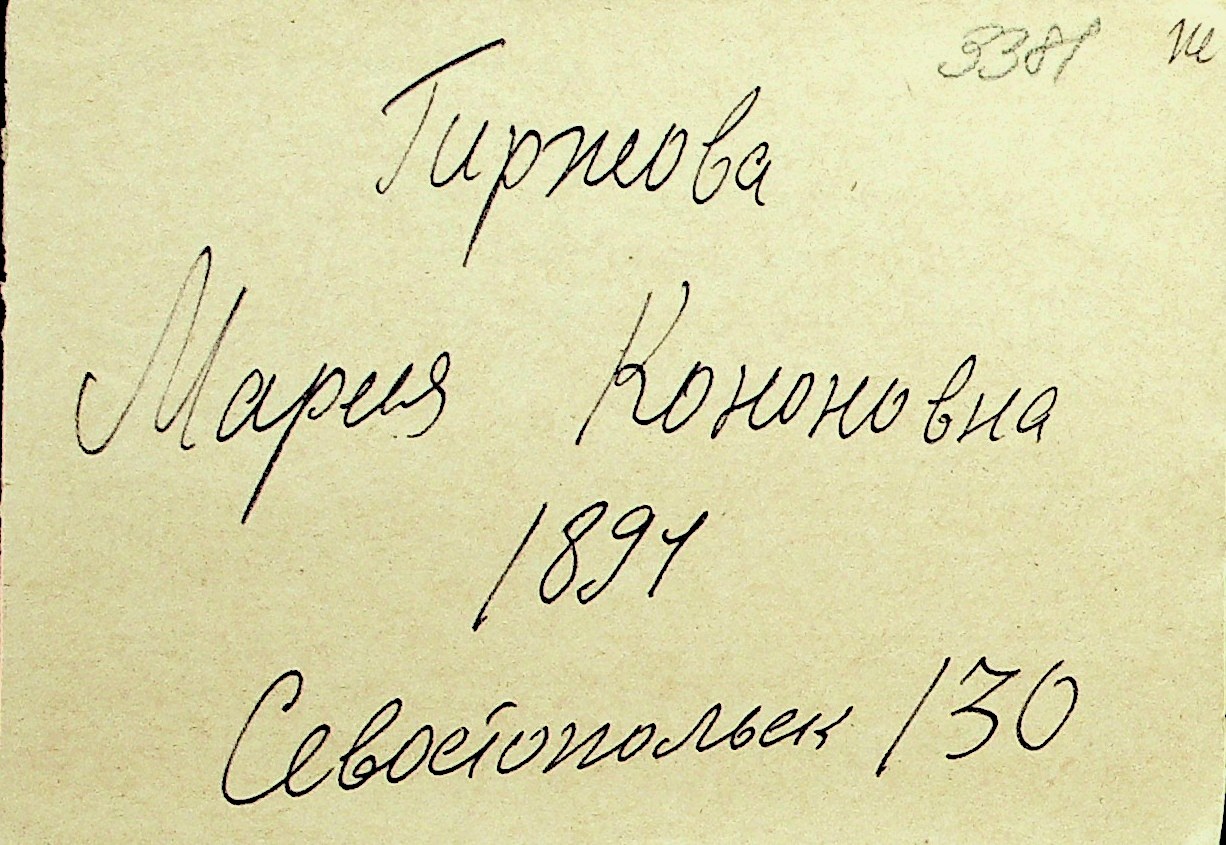 3381 ж
Гиржова
Мария Кононовна
1891
Севостопольск 130